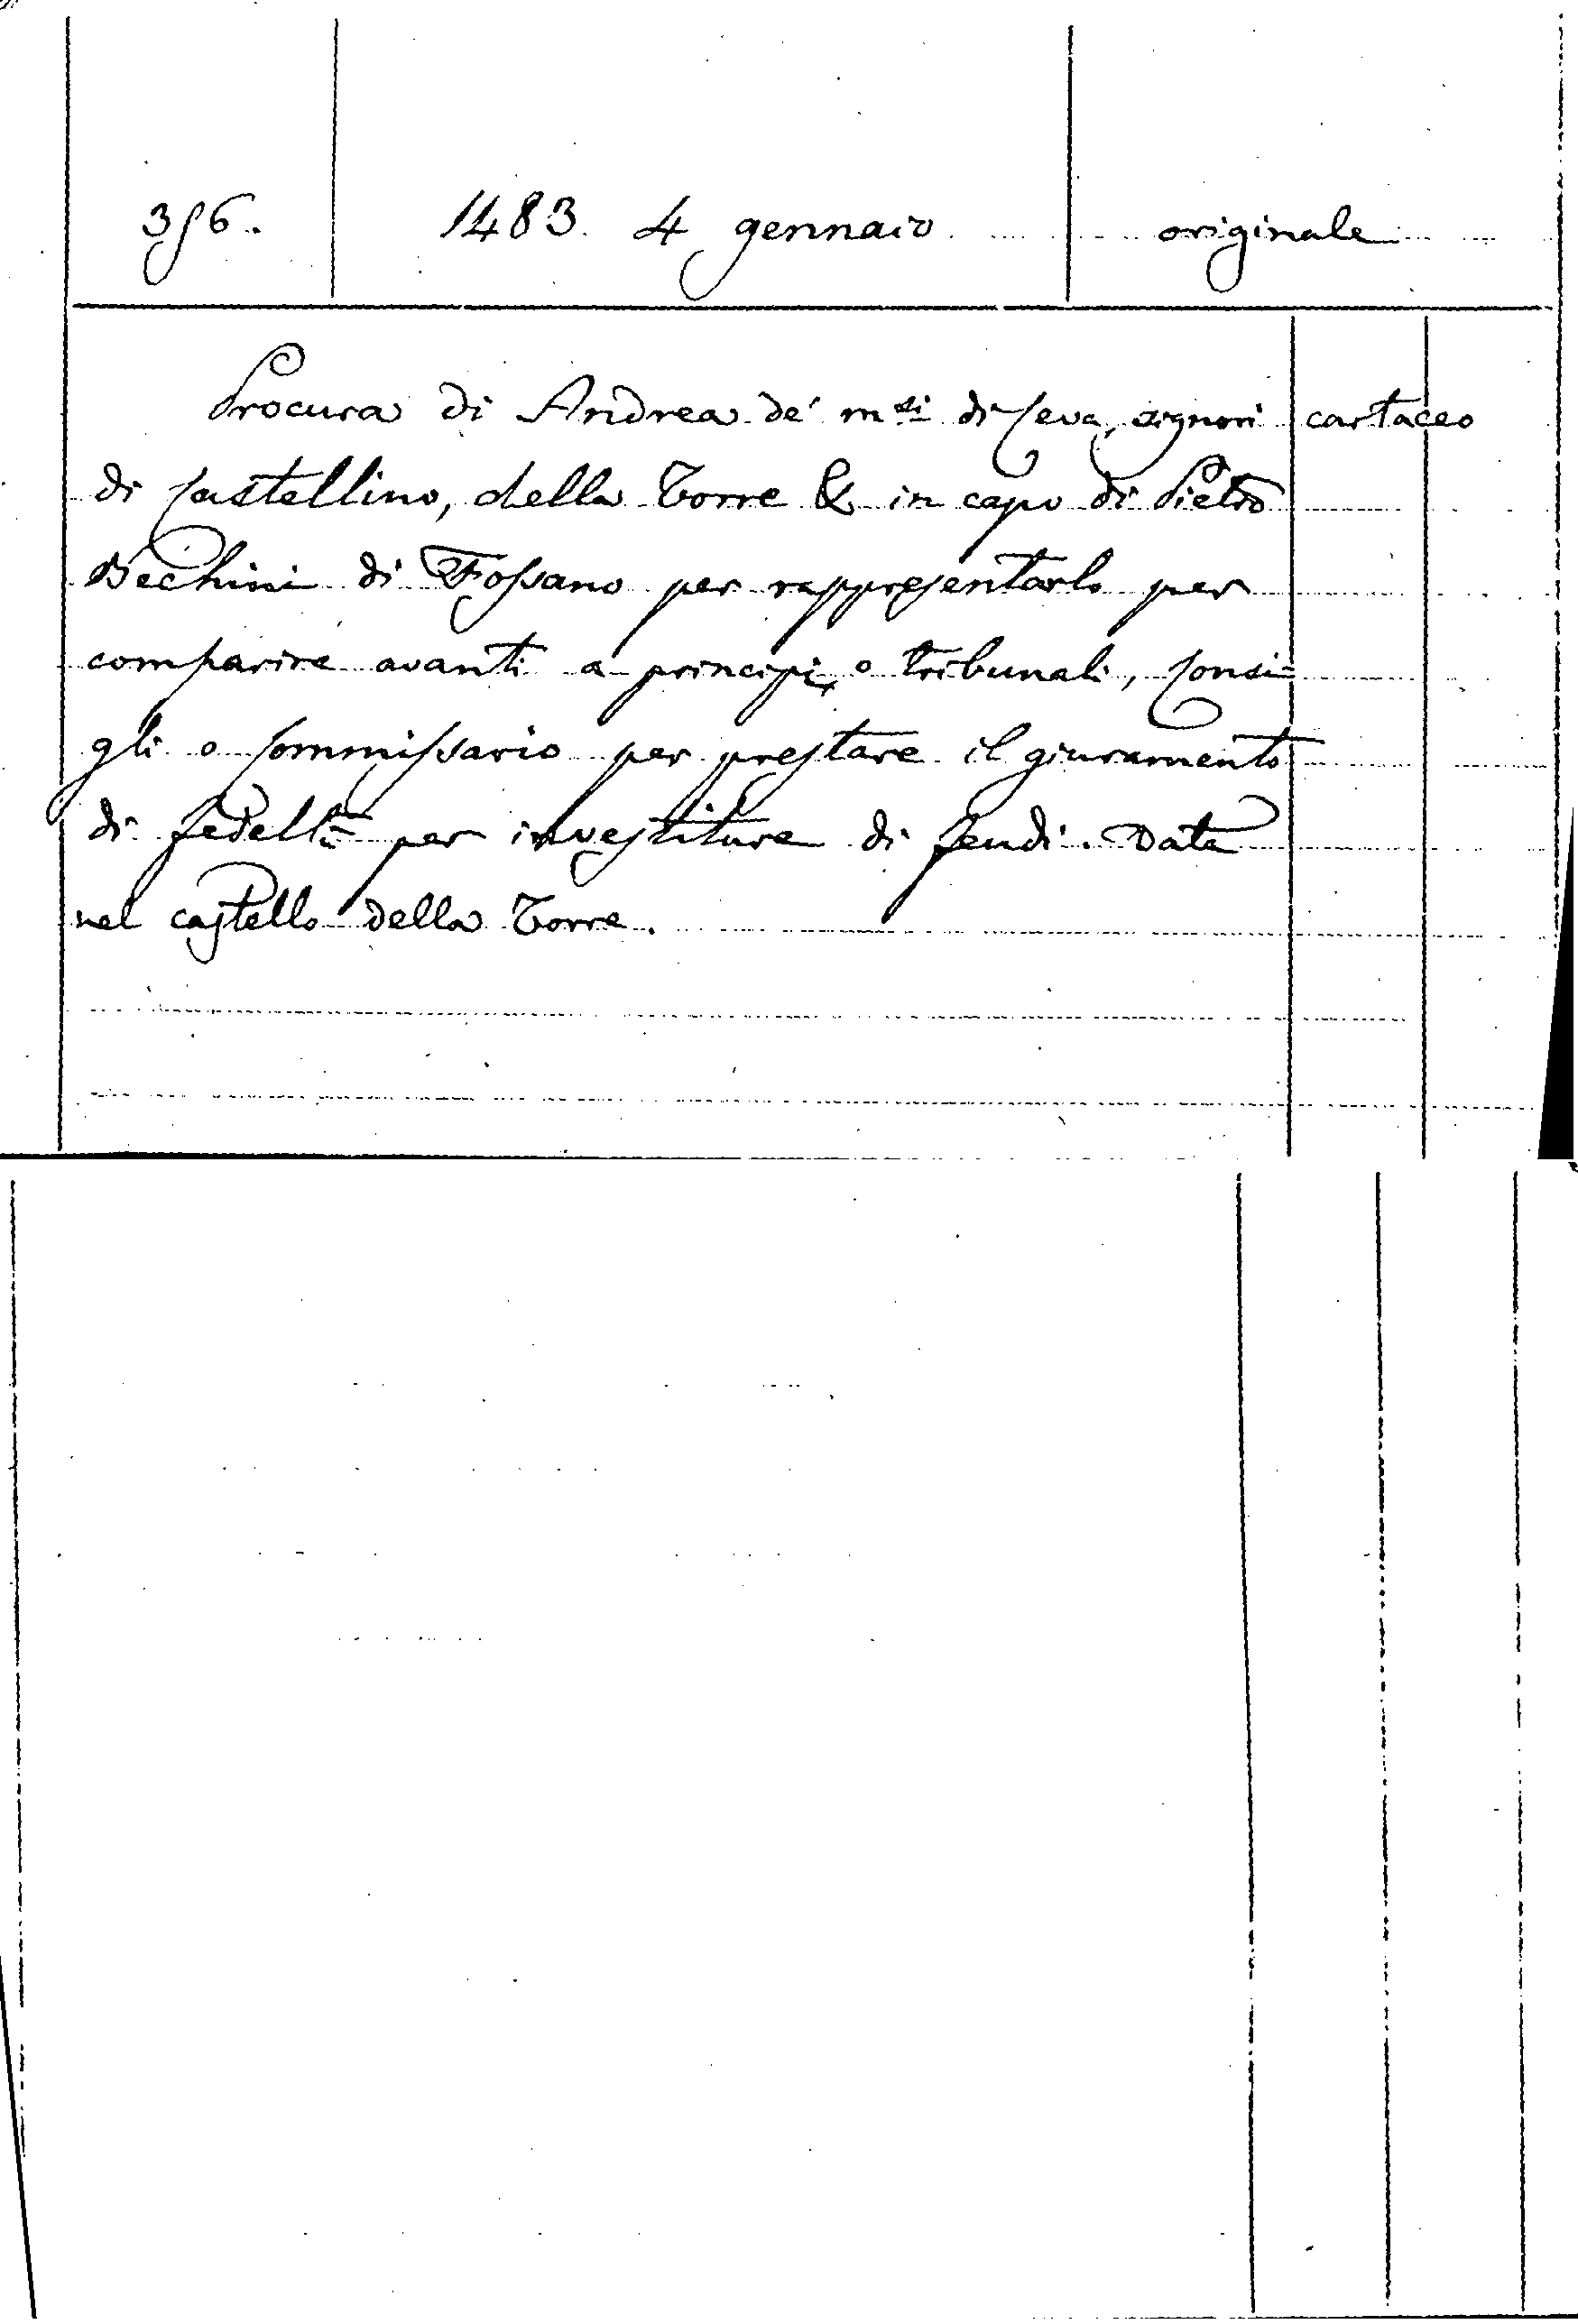 356. 1483. 4 gennaio originale
Procura di Andrea de' m.si di Ceva, signori cartaceo
di Castellino, della Torre & in capo di Pietro
Bechini di Fossano per rappresentarlo per
comparire avanti a principi, o tribunali, Consi=
gli o Commissario per prestare il giuramento
di fedeltà per investiture di feudi. Data
nel castello della Torre.